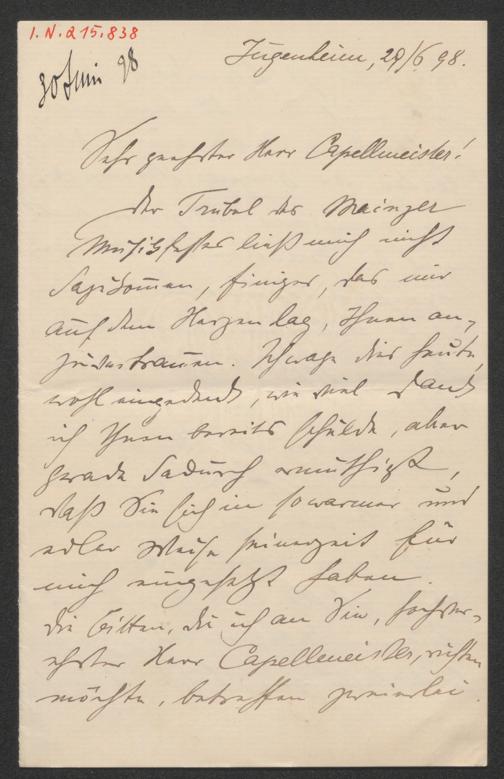 I.N. 215,838
30 Juni 98
Jugenheim, 29/6 98.
Sehr geehrter Herr Capellmeister!
Der Trubel des Mainzer
Musikfestes ließ mich nicht
dazukommen, einiges, das mir
auf dem Herzen lag, Ihnen an-
zuvertrauen. Ich wage dies heute,
wohl eingedenk, wie viel Dank
ich Ihnen bereits schulde, aber
gerade dadurch ermuthigt,
daß Sie sich in so warmer und
edler Weise seinerzeit für
mich eingesetzt haben.
Die Bitten, die ich an Sie, hochver-
ehrter Herr Capellmeister, richten
möchte, betreffen zweierlei.